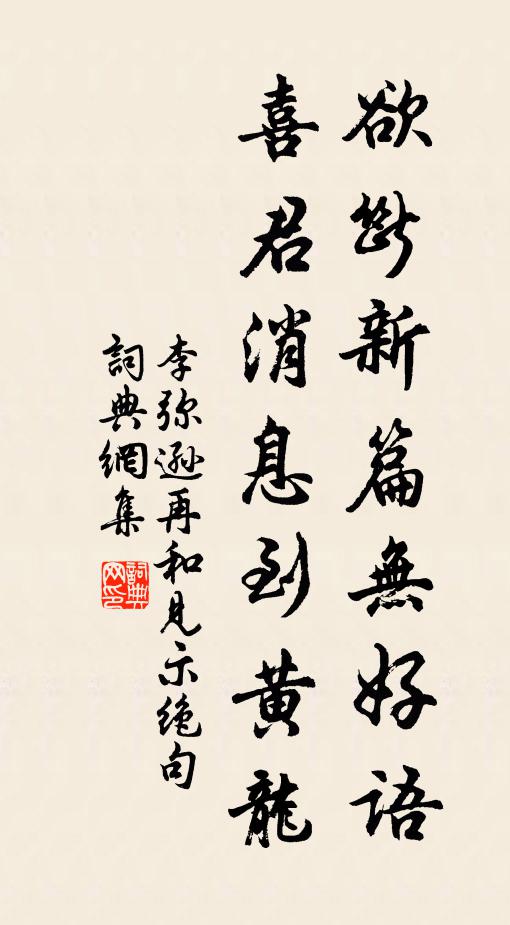 欲斷新篇無好語
喜君消息到黄龍
李弥遜再和見示絶句
詞典網集
詞典网印